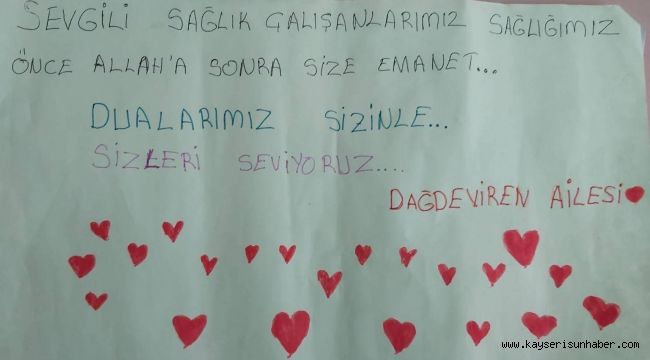 SEVGİLİ SAĞLIK ÇALIŞANLARIMIZ SAĞLIĞIMIZ
ÖNCE ALLAH'A SONRA SİZE EMANET...
DUALARIMIZ SİZİNLE...
SİZLERİ SEVİYORUZ....
DAĞDEVİREN AİLESİ
www.kayserisunhaber.com